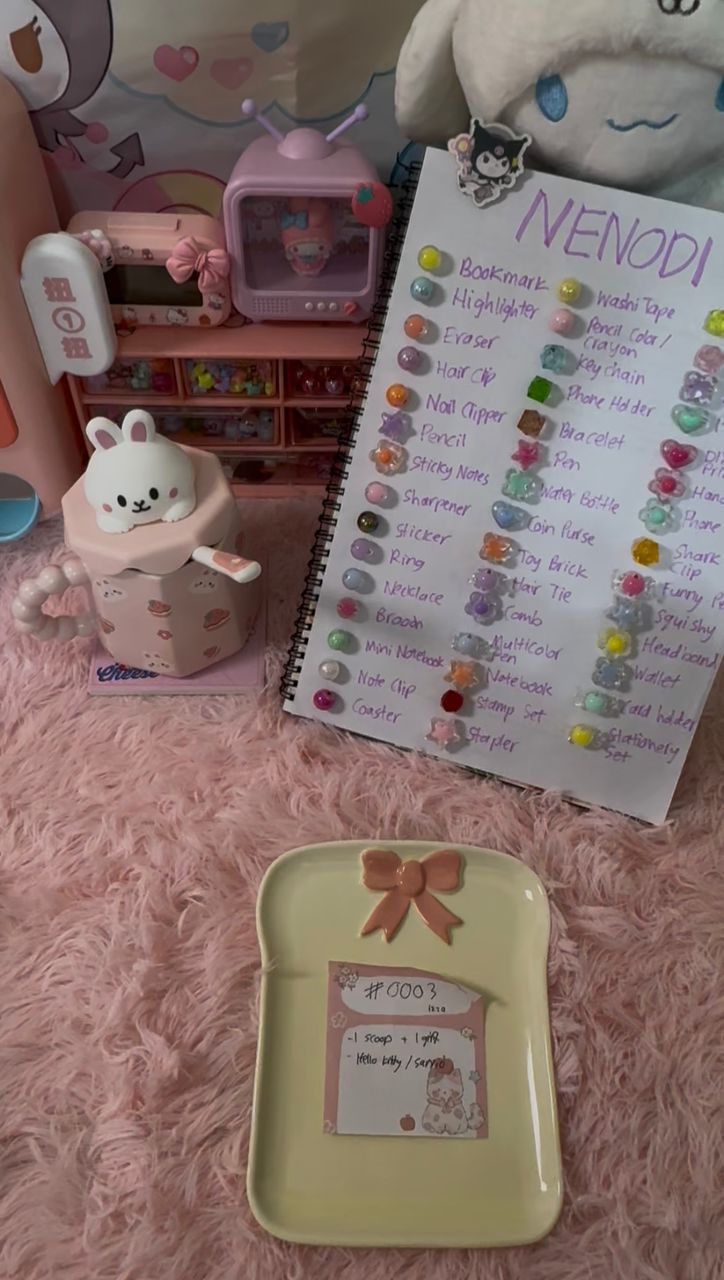 扭
1
扭
NENODI
Bookmark
Highlighter
Eraser
Hair Clip
Nail Clipper
Pencil
Sticky Notes
Sharpener
Sticker
Ring
Necklace
Brooch
Mini Notebook
Note Clip
Coaster
Washi Tape
Pencil Color/
Crayon
Key chain
Phone Holder
Bracelet
Pen
Water Bottle
Coin Purse
Toy Brick
Hair Tie
Comb
Multicolor
Pen
Notebook
Stamp Set
Stapler
Phone
Shark
Clip
Funny
Squishy
Headband
Wallet
Card holder
Stationery
Set
Cheese
#0003
-1 scoop + 1 gift
- Hello kitty / sanrio